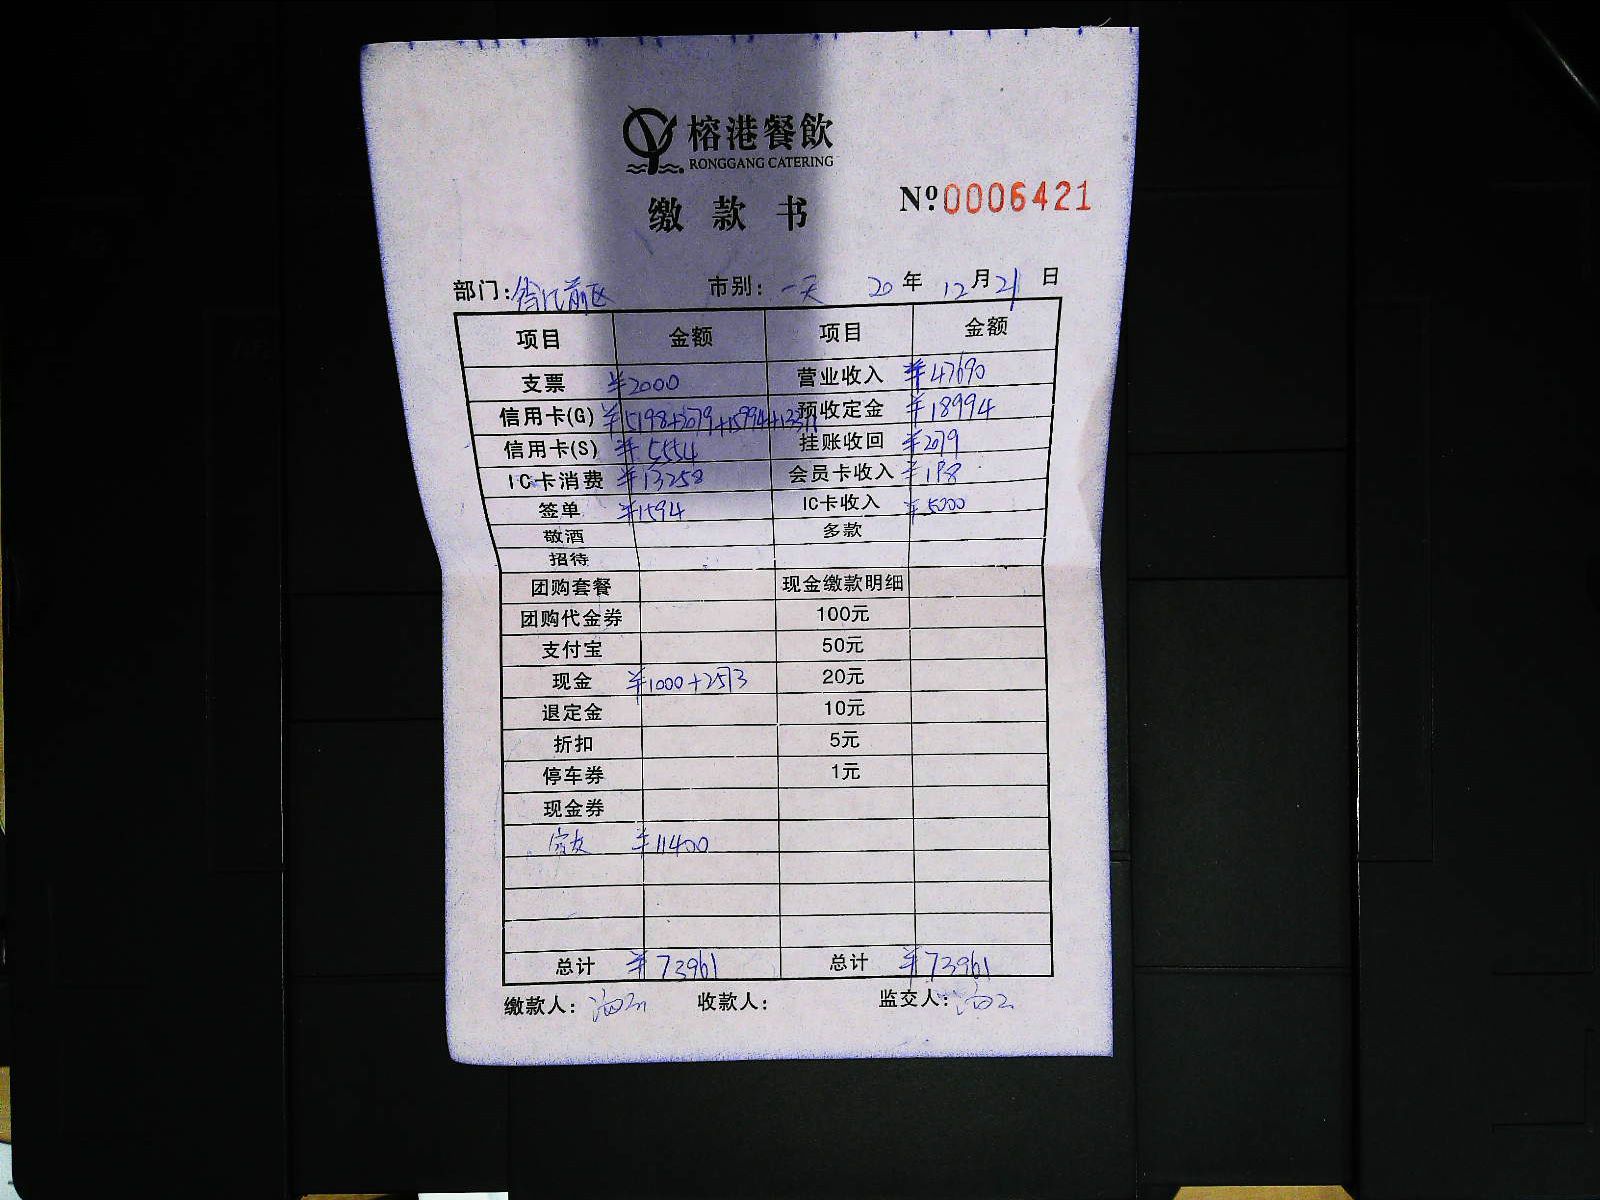 榕港餐飲
RONGGANG CATERING
缴款书 Nº 0006421
部门: 前区 市别: 一天 20年 12月21日
项目 金额 项目 金额
支票 ¥2000 营业收入 ¥47690
信用卡(G) ¥5198+2079+15994+13311 预收定金 ¥18994
信用卡(S) ¥5554 挂账收回 ¥2079
IC卡消费 ¥13258 会员卡收入 ¥198
签单 ¥1594 IC卡收入 ¥5000
敬酒 多款
招待
团购套餐 现金缴款明细
团购代金券 100元
支付宝 50元
现金 ¥1000+2573 20元
退定金 10元
折扣 5元
停车券 1元
现金券
¥11400
总计 ¥73961 总计 ¥73961
缴款人: 收款人: 监交人: